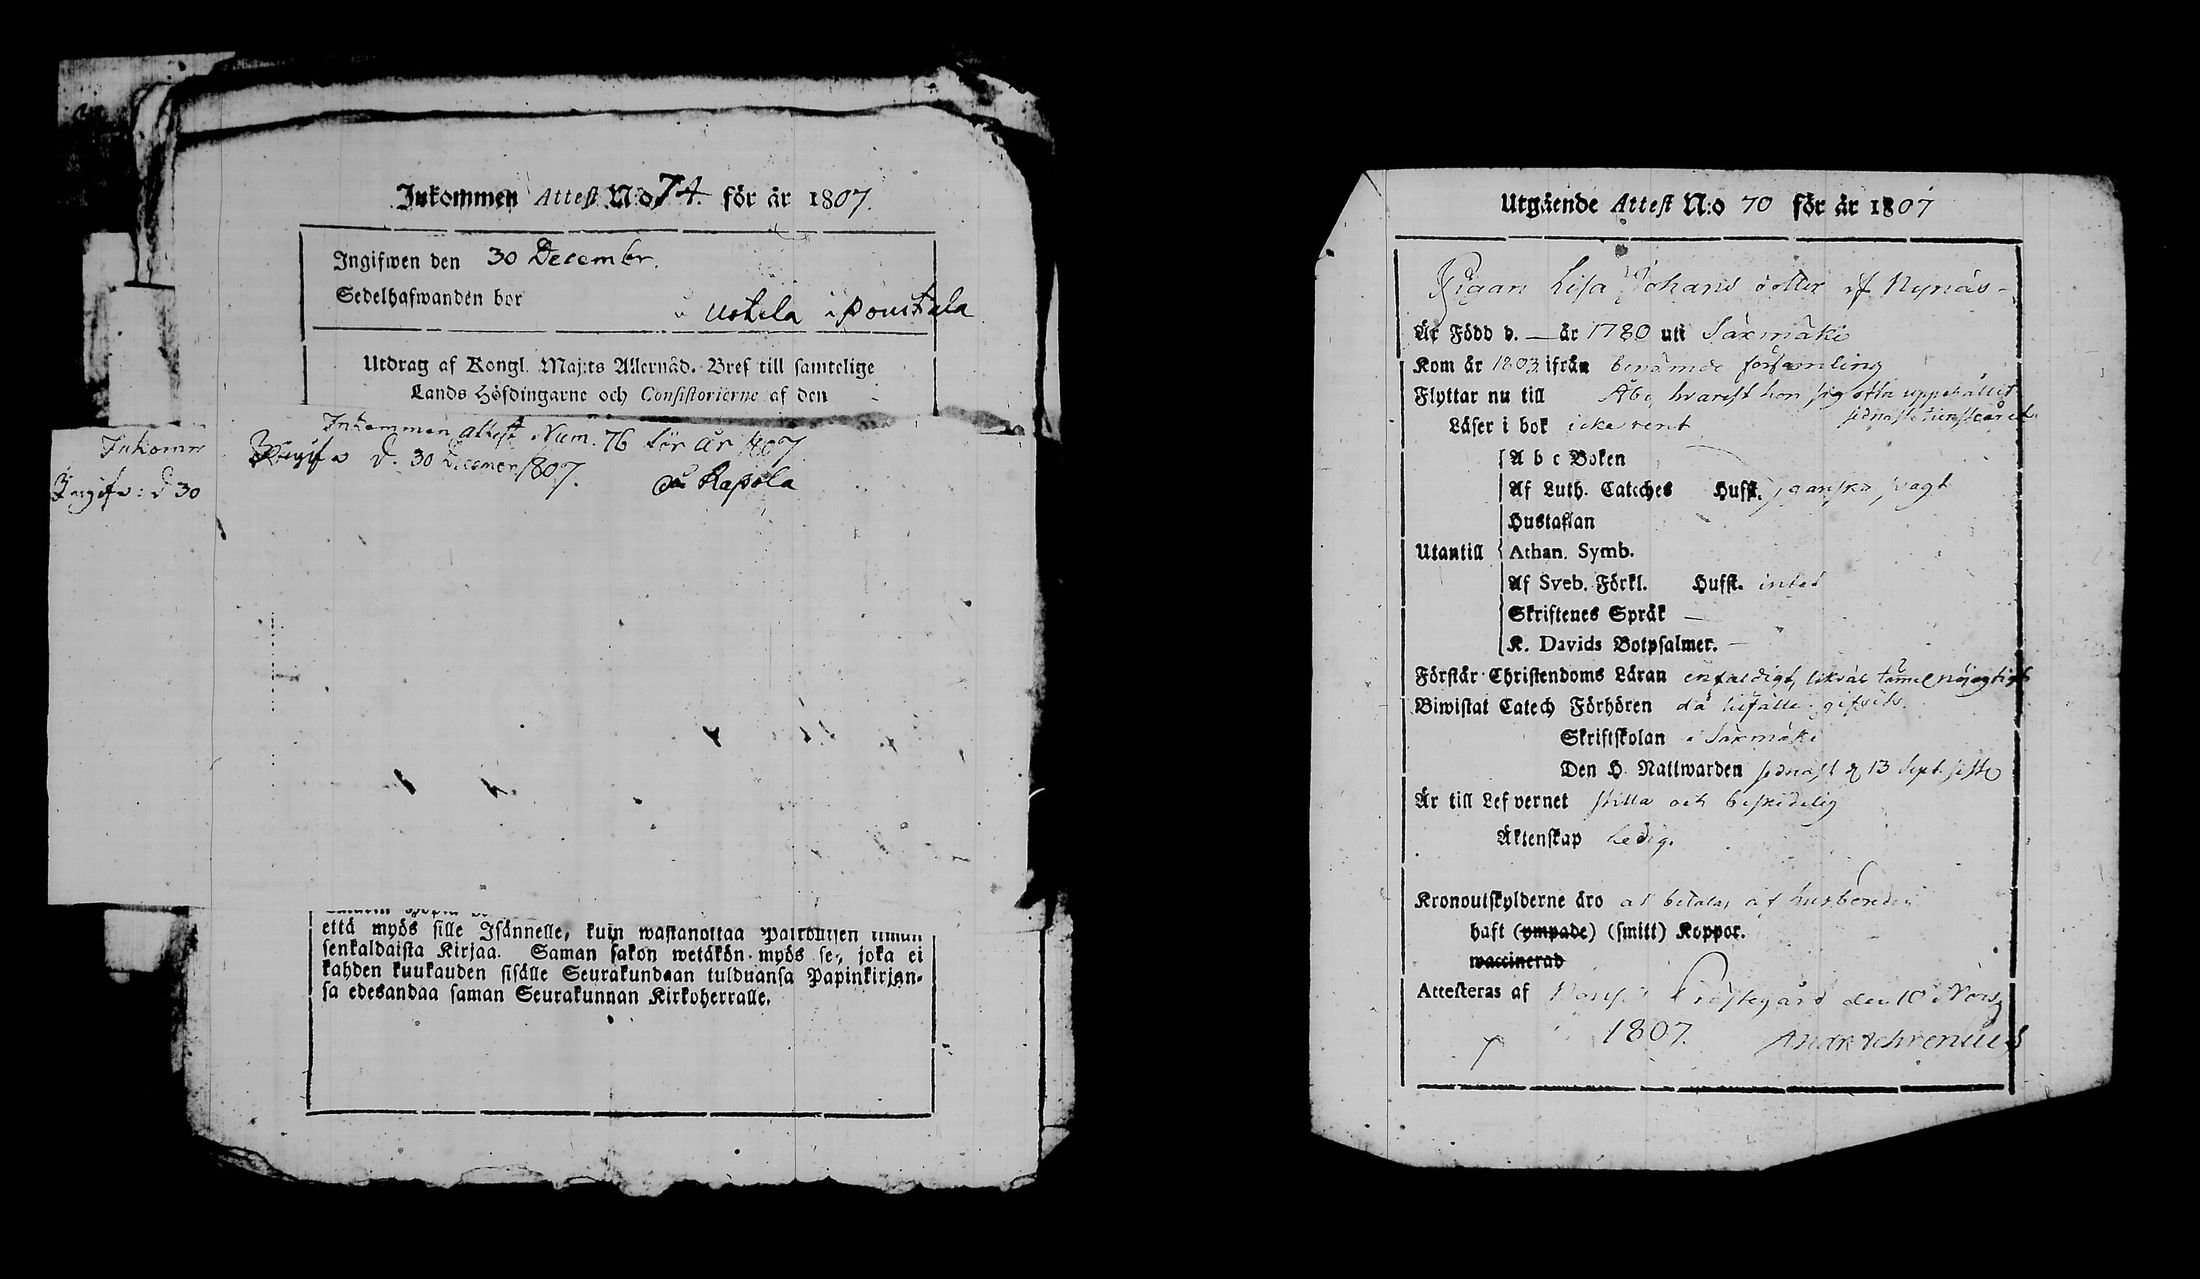 Inkommen Attest N:o 74. för år 1807.
Ingifwen den 30 Decembr.
Sedelhafwanden bor
Uskila i Pouttala
Utdrag af Kongl. Maj:ts Allernåd. Bref till samtelige
Lands Höfdingarne och Consistorierne af den
Inkommen attest Num. 76 för år 1807
Ingifv d. 30 Decemer 1807.
Rapola
Inkomm
Ingifv: d 30
että myös sille Isännelle, kuin wastanottaa Palwoliisen ilman
senkaldaista Kirjaa. Saman sakon wetäkön myös se, joka ei
kahden kuukauden sisälle Seurakundaan tulduansa Papinkirjan-
sa edesandaa saman Seurakunnan Kirkoherralle.
Utgående Attest N:o 70 för år 1807
Pigan Lisa Johans dotter af Nynäs
Är Född d. — år 1780 uti Säxmäki
Kom år 1803 ifrån benämde församling
Flyttar nu till Åbo, hvarest hon sig ofta uppehållit
sednaste tjensteåret
Läser i bok icke rent
A b c Boken
Af Luth. Cateches Hufst. ganska svagt
Hustaflan
Utantill Athan. Symb.
Af Sveb. Förkl. Hufst. intet
Skriftenes Språk —
K. Davids Botpsalmer. —
Förstår Christendoms Läran enfaldigt, likväl
Biwistat Catech Förhören då tilfälle gifvits.
Skriftskolan i Säxmäki
Den H. Nattwarden sednast d 13 Sept. sistl.
Är till Lefvernet stilla och beskedelig
Äktenskap Ledig.
Kronoutskylderne äro at betalas af husbonden
haft (ympade) (smitt) Koppor.
waccinerad
Attesteras af Prästegård den 10 Nov.
1807.